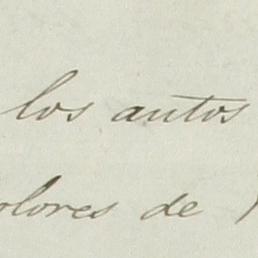 los autos
olores de